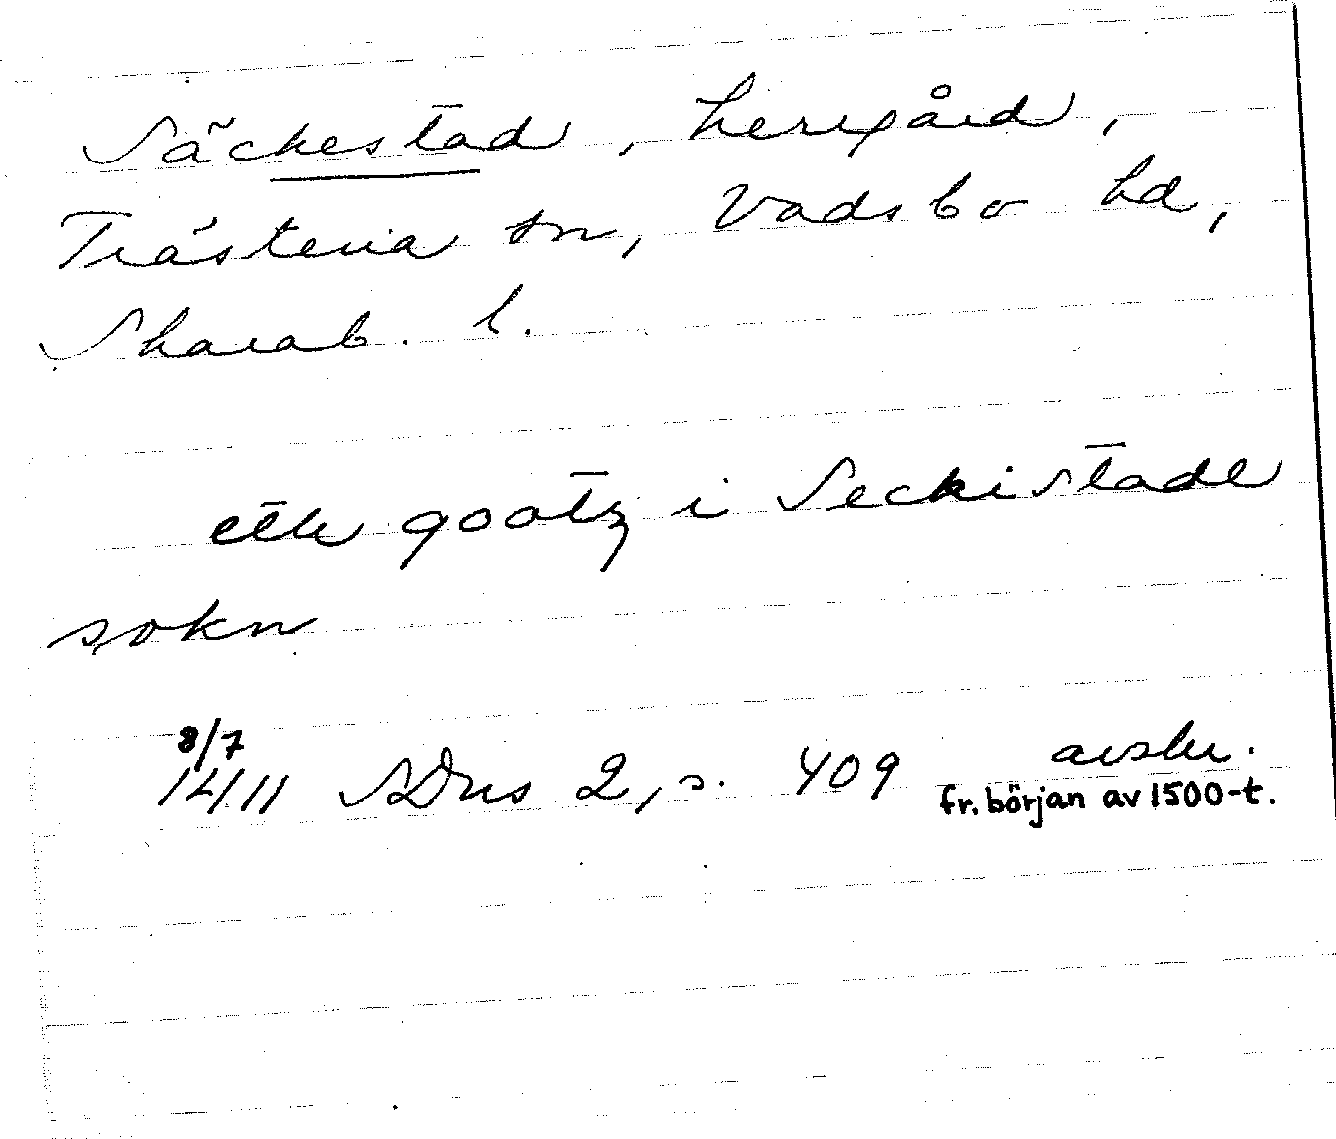 Säckestad, herrgård,
Trästena sn, Vadsbo hd,
Skarab. l.
ett gootz i Seckistadl
sokn
8/7
1411 SDns 2, s. 409 avskr.
fr. början av 1500-t.